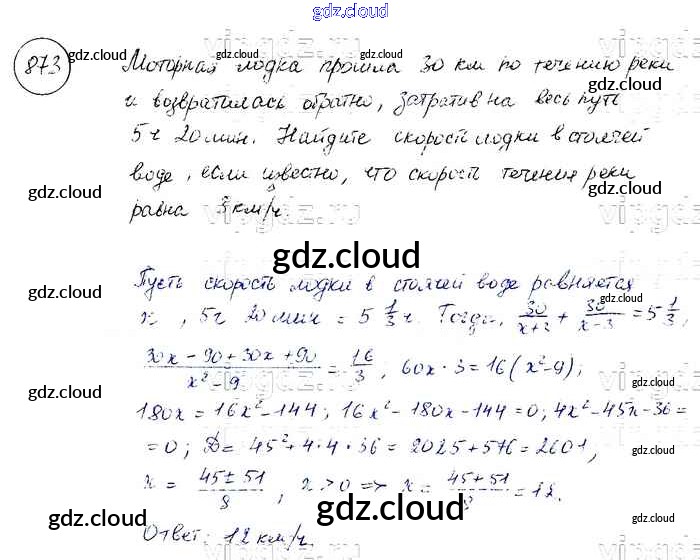 gdz.cloud
873
gdz.cloud
gdz.cloud
Моторная лодка прошла 30 км по течению реки
и возвратилась обратно, затратив на весь путь
5 ч 20 мин. Найдите скорость лодки в стоячей
воде, если известно, что скорость течения реки
равна 3 км/ч.
gdz.cloud
gdz.cloud
gdz.cloud
gdz.cloud
gdz.cloud
Пусть скорость лодки в стоячей воде равняется
x, 5ч 20 мин = 5 1/3 ч. Тогда, 30/(x+3) + 30/(x-3) = 5 1/3,
(30x - 90 + 30x + 90)/(x² - 9) = 16/3, 60x · 3 = 16(x² - 9);
180x = 16x² - 144; 16x² - 180x - 144 = 0; 4x² - 45x - 36 =
= 0; D = 45² + 4·4·36 = 2025 + 576 = 2601,
x = (45 ± 51)/8, x > 0 => x = (45 + 51)/8 = 12.
Ответ: 12 км/ч.
gdz.cloud
gdz.cloud
gdz.cloud
gdz.cloud
gdz.cloud
gdz.cloud
gdz.cloud
gdz.cloud